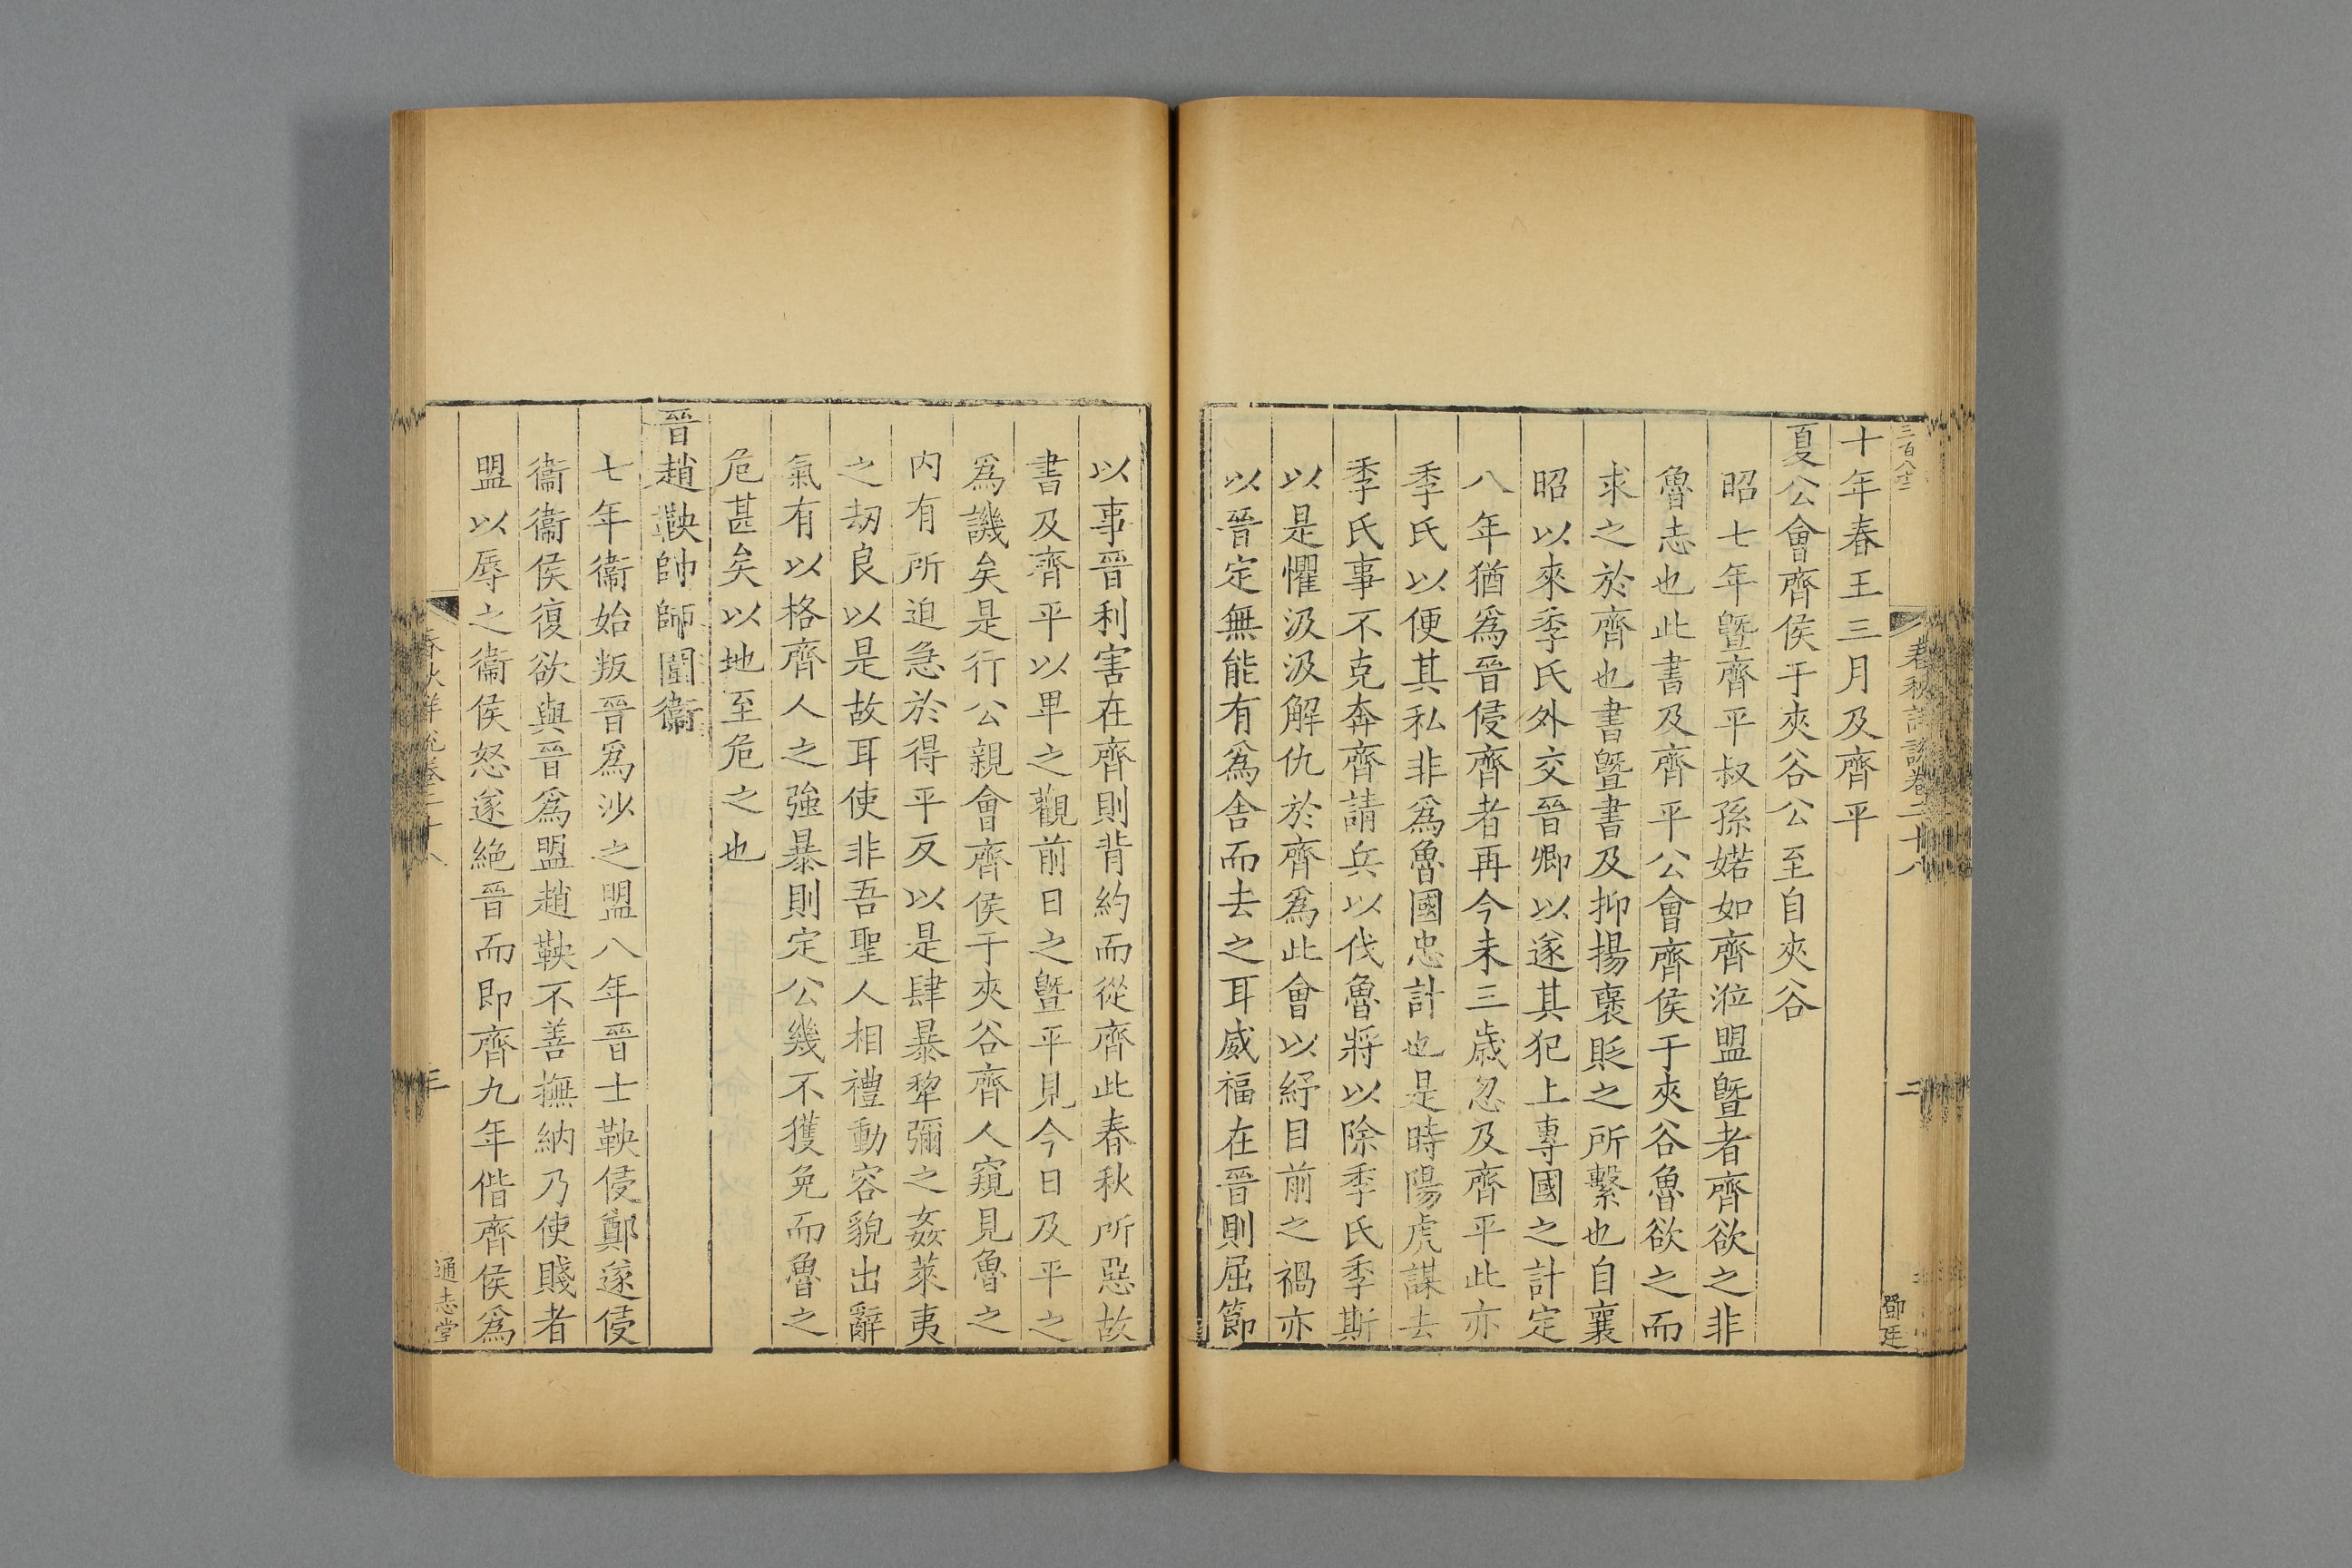 三百八十二
春秋詳說卷二十八
二
鄧廷
十年春王三月及齊平
夏公會齊侯于夾谷公至自夾谷
昭七年曁齊平叔孫婼如齊涖盟曁者齊欲之非
魯志也此書及齊平公會齊侯于夾谷魯欲之而
求之於齊也書曁書及抑揚襃貶之所繫也自襄
昭以來季氏外交晉卿以遂其犯上專國之計定
八年猶爲晉侵齊者再今未三歲忽及齊平此亦
季氏以便其私非爲魯國忠計也是時陽虎謀去
季氏事不克奔齊請兵以伐魯將以除季氏季斯
以是懼汲汲解仇於齊爲此會以紓目前之禍亦
以晉定無能有爲舍而去之耳威福在晉則屈節
以事晉利害在齊則背約而從齊此春秋所惡故
書及齊平以卑之觀前日之曁平見今日及平之
爲譏矣是行公親會齊侯于夾谷齊人窺見魯之
内有所迫急於得平反以是肆暴犂彌之姦萊夷
之刼良以是故耳使非吾聖人相禮動容貌出辭
氣有以格齊人之強暴則定公幾不獲免而魯之
危甚矣以地至危之也
晉趙鞅帥師圍衞
七年衞始叛晉爲沙之盟八年晉士鞅侵鄭遂侵
衞衞侯復欲與晉爲盟趙鞅不善撫納乃使賤者
盟以辱之衞侯怒遂絶晉而即齊九年偕齊侯爲
春秋詳說卷二十八
三
通志堂